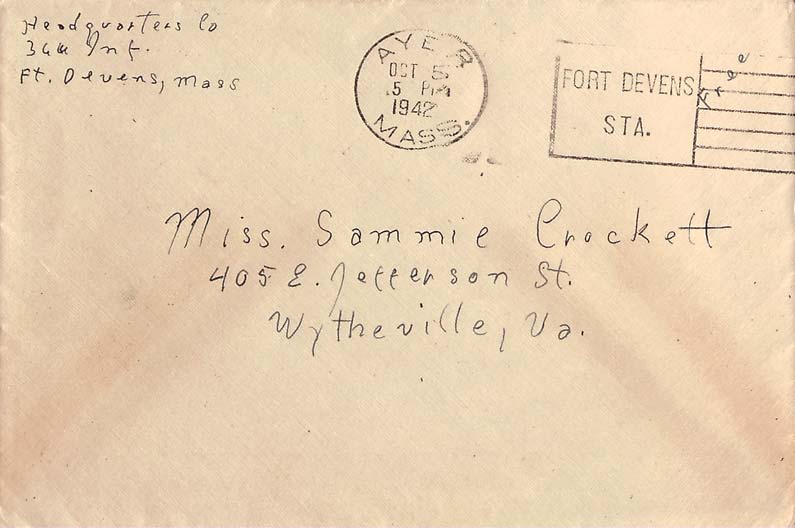 Headquarters Co
366 Inf.
Ft. Devens, Mass
AYER
OCT 5
5 PM
1942
MASS.
FORT DEVENS
STA.
Free
Miss. Sammie Crockett
405 E. Jefferson St.
Wytheville, Va.